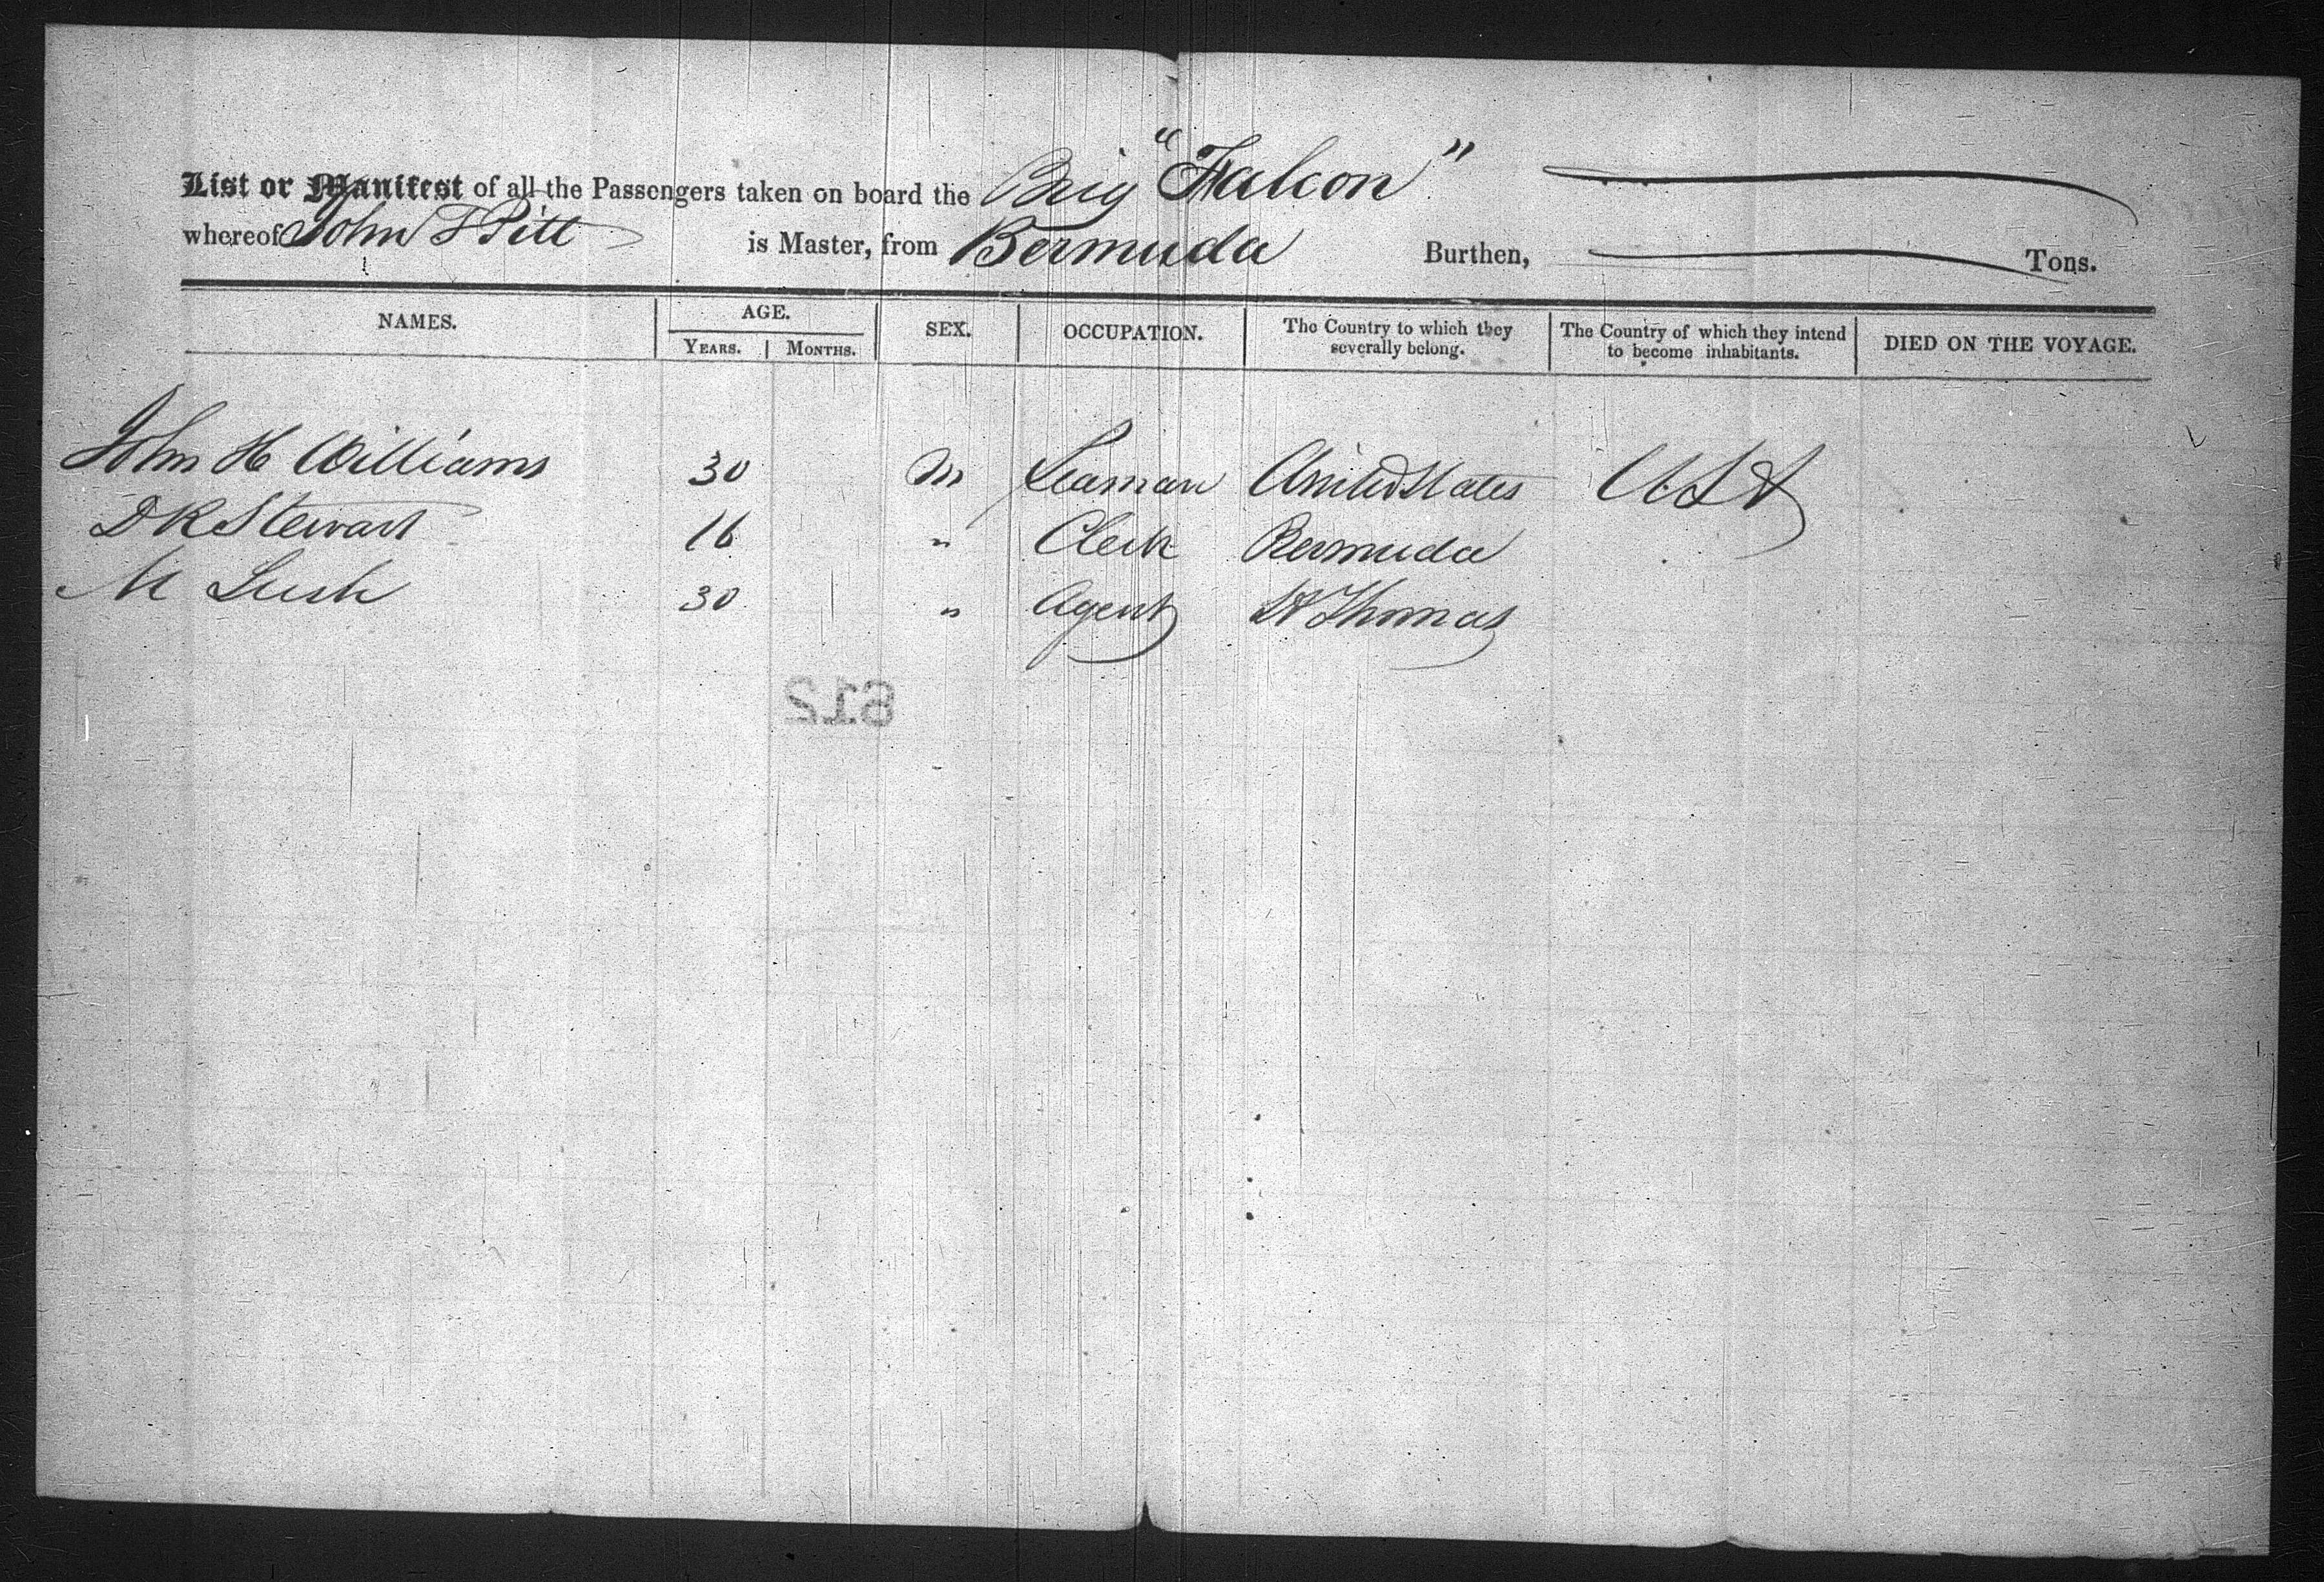 List or Manifest of all the Passengers taken on board the Brig "Falcon"
whereof John T Pitt is Master, from Bermuda Burthen, Tons.
NAMES. AGE. YEARS. MONTHS. SEX. OCCUPATION. The Country to which they severally belong. The Country of which they intend to become inhabitants. DIED ON THE VOYAGE.
John H Williams 30 M Seaman United States U.S.A
D R Stewart 16 " Clerk Bermuda
M Lush 30 " Agent St Thomas
612